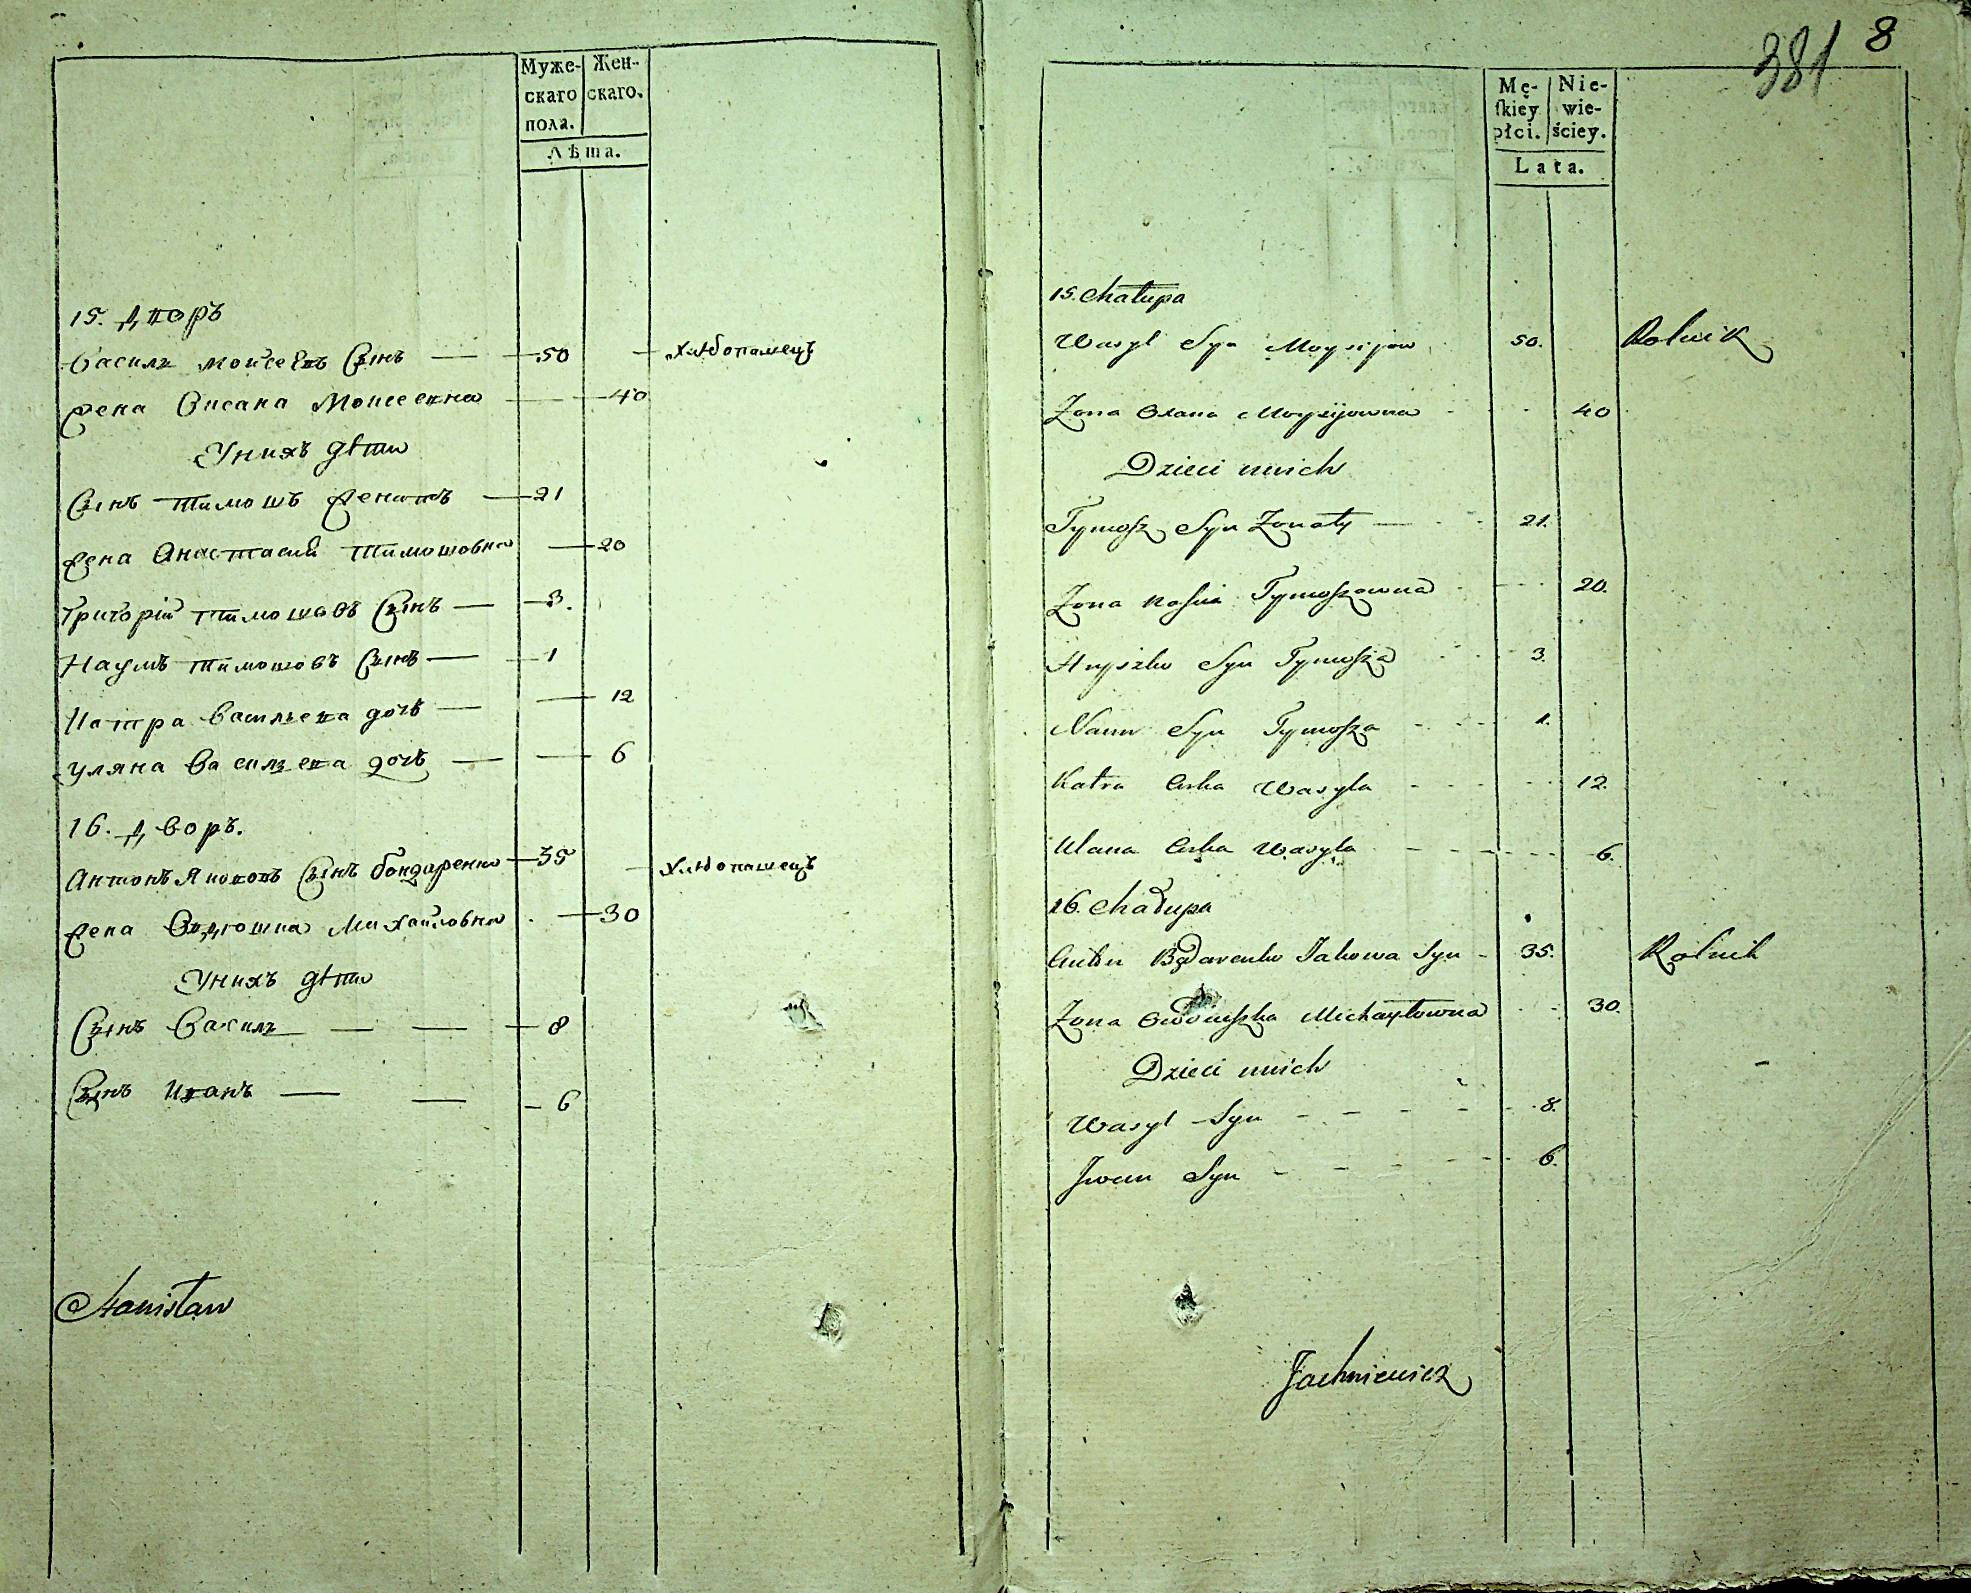 Муже-
скаго
пола.
Жен-
скаго.
Лѣта.
15. Дворъ
Василь Моисеевъ Сынъ — 50 — хлѣбопашецъ
Жена Оксана Моисеевна — 40
У нихъ дѣти
Сынъ Тимошъ Женатъ — 21
Жена Анастасия Тимошовна — 20
Григорій Тимошовъ Сынъ — 3.
Наумъ Тимошовъ Сынъ — 1
Катра Васильева дочь — 12
Уляна Васильева дочь — 6
16. Дворъ.
Антонъ Якововъ Сынъ Бондаренко — 35 — Хлѣбопашецъ
Жена Овдюшка Михайловна — 30
У нихъ дѣти
Сынъ Василь — 8
Сынъ Иванъ — 6
Stanisław
381 8
Mę-
skiey
płci.
Nie-
wie-
ściey.
Lata.
15. Chałupa
Wasyl Syn Moysijow 50. Rolnik
Zona Oxana Moysijowna 40
Dzieci unich
Tymosz Syn Zonaty — 21.
Zona Nascia Tymoszowna 20.
Hryszko Syn Tymosza 3.
Naum Syn Tymosza 1.
Katra Curka Wasyla 12.
Ulana Curka Wasyla 6.
16. Chałupa
Anton Bądarenko Jakowa Syn 35. Rolnik
Zona Owdiuszka Michayłowna 30.
Dzieci unich
Wasyl Syn 8.
Iwan Syn 6.
Jachniewicz